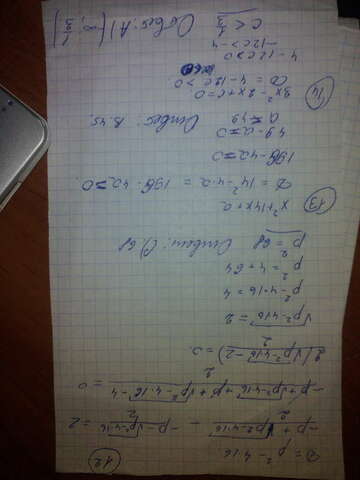 12
D = p² - 4·16
(-p + √(p²-4·16))/2 - (-p - √(p²-4·16))/2 = 2
(-p + √(p²-4·16) + p + √(p²-4·16) - 4)/2 = 0
2(√(p²-4·16) - 2)/2 = 0
√(p²-4·16) = 2
p² - 4·16 = 4
p² = 4 + 64
p² = 68 Ответ: 68
13
x² + 14x + a
D = 14² - 4·a = 196 - 4a = 0
196 - 4a = 0
49 - a = 0
a = 49 Ответ: B.
14
3x² - 2x + c = 0
D = 4 - 12c > 0
4 - 12c > 0
-12c > -4
c < 1/3 Ответ: A) (-∞; 1/3)